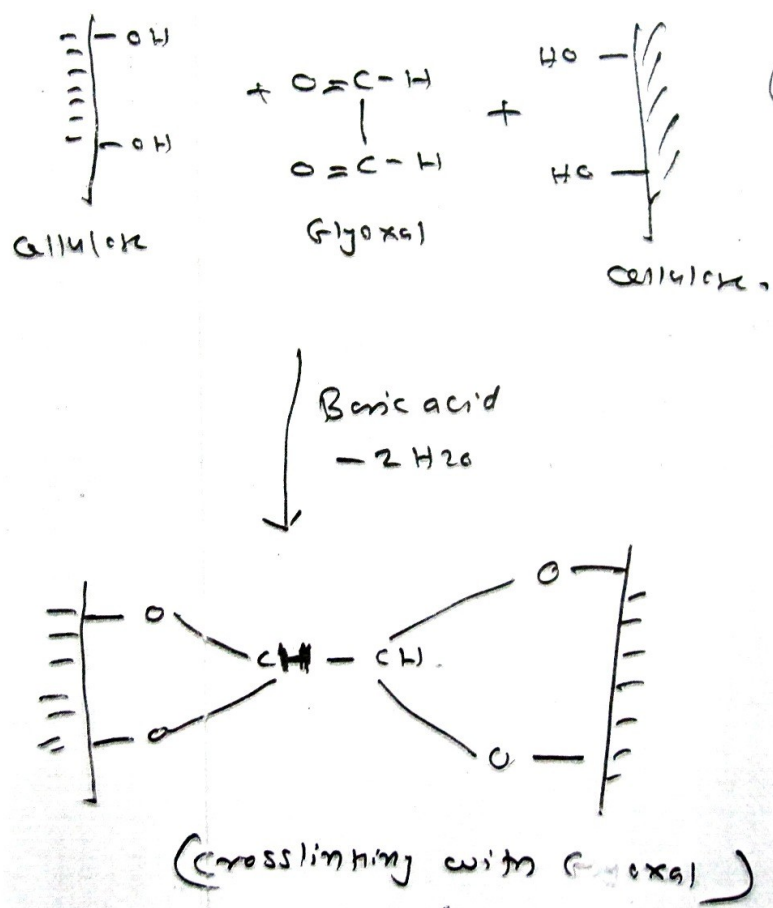 OH
OH
cellulose
+ O=C-H
O=C-H
Glyoxal
+
HO
HO
cellulose.
Boric acid
- 2 H2O
O
O
CH - CH.
O
O
(crosslinking with G oxal)